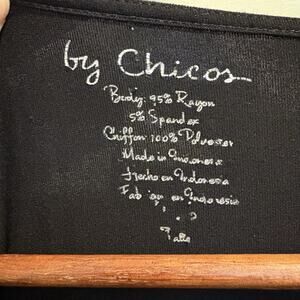 by Chicos
Body: 95% Rayon
5% Spandex
Chiffon: 100% Polyester
Made in Indonesia
Hecho en Indonesia
en
Talla